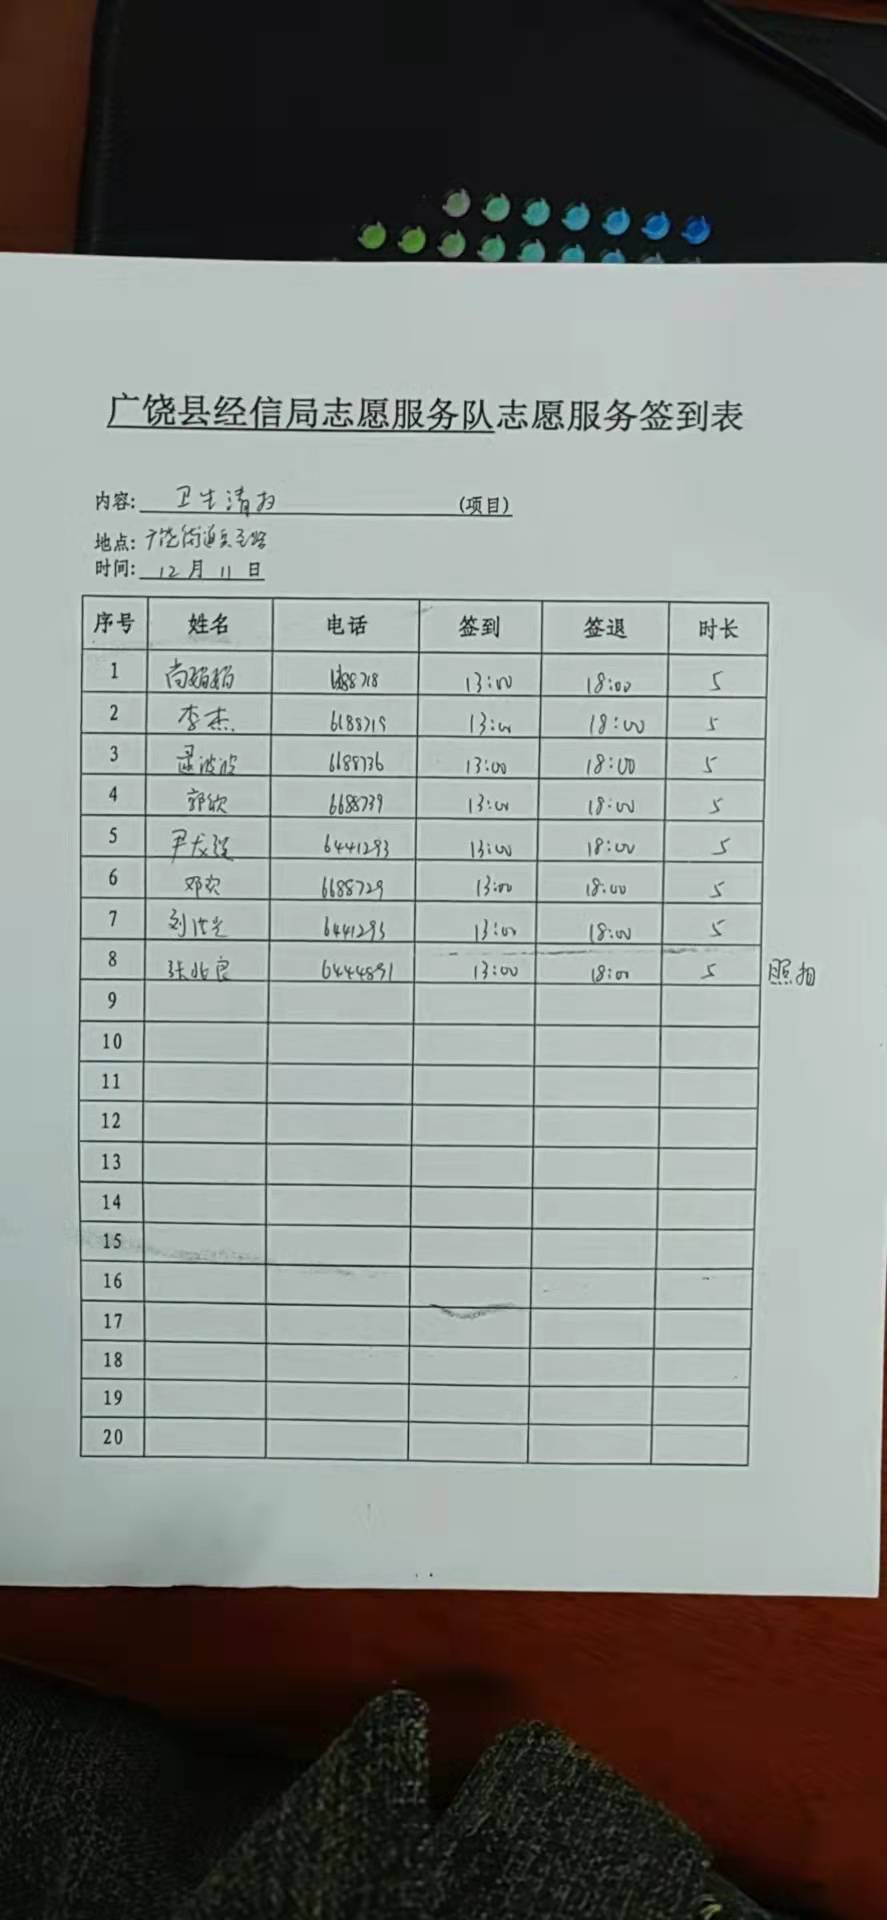 广饶县经信局志愿服务队志愿服务签到表
内容: 卫生清扫 (项目)
地点: 广饶街道
时间: 12月11日
序号 姓名 电话 签到 签退 时长
1 尚娟娟 13:00 18:00 5
2 李杰 6688719 13:00 18:00 5
3 波波 6688736 13:00 18:00 5
4 郭欣 6688739 13:00 18:00 5
5 6441293 13:00 18:00 5
6 邓欢 6688729 13:00 18:00 5
7 6441293 13:00 18:00 5
8 张兆良 6444891 13:00 18:00 5 照相
9
10
11
12
13
14
15
16
17
18
19
20